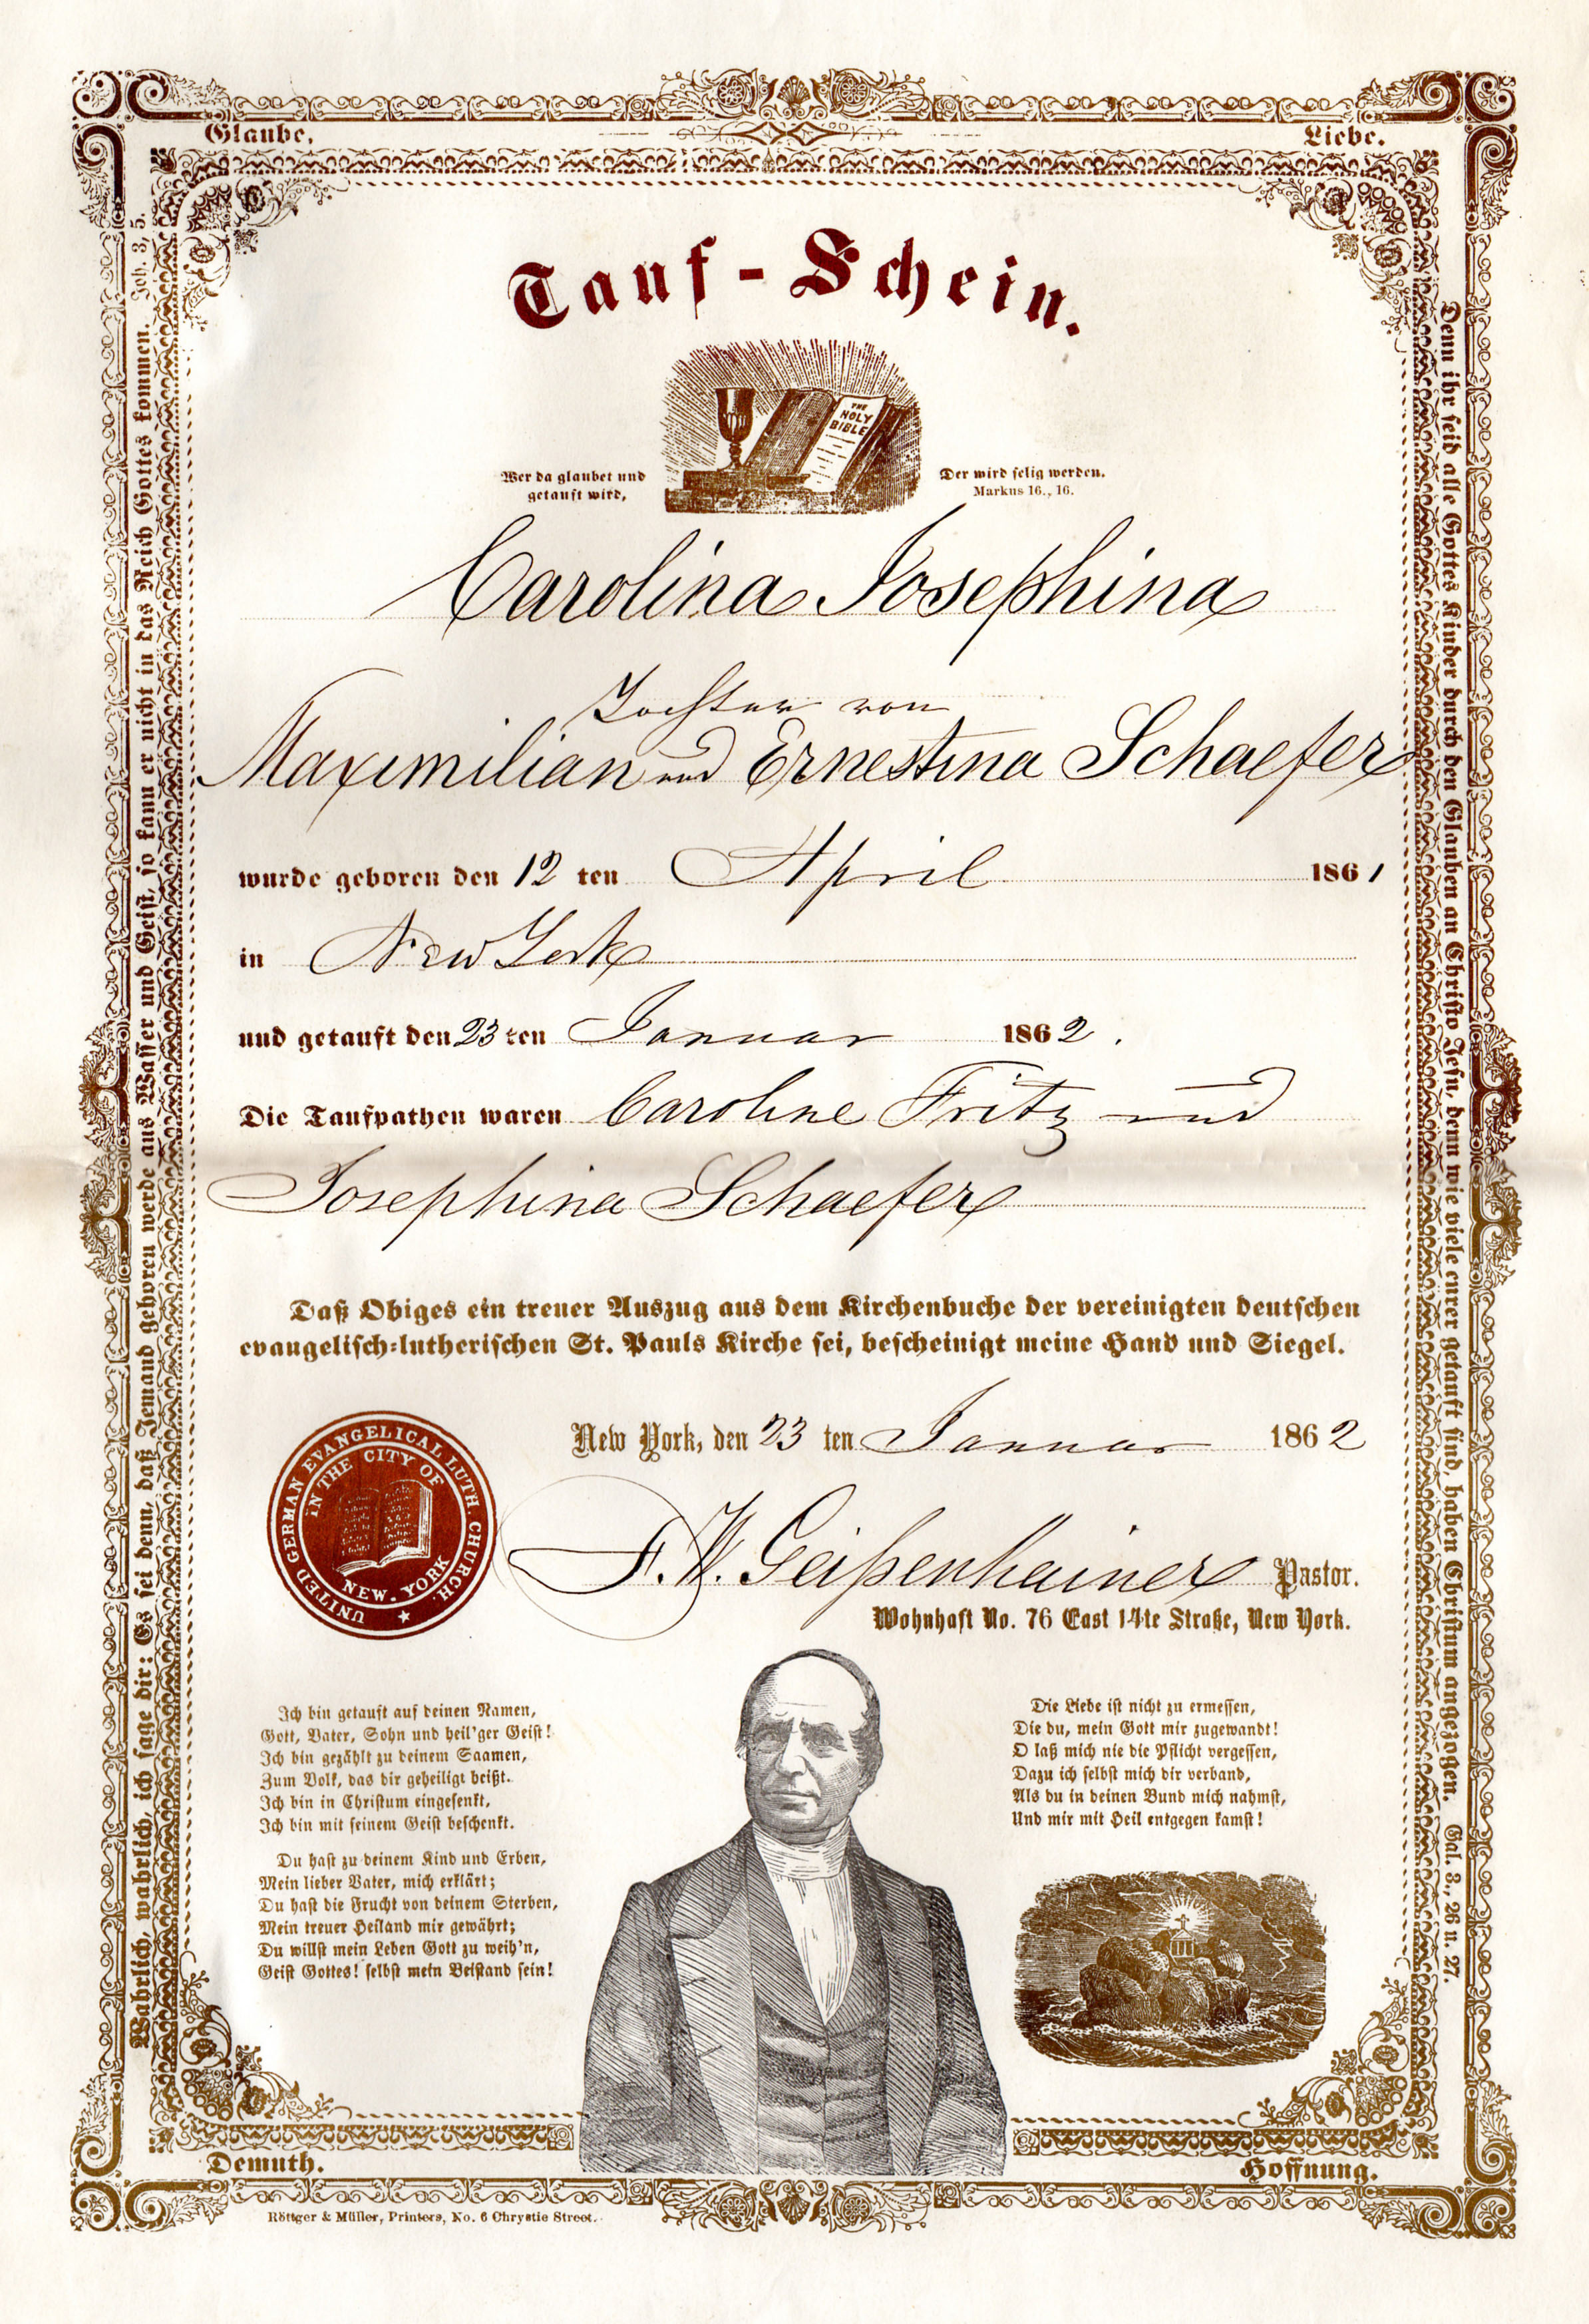 Glaube,
Liebe.
Wahrlich, wahrlich, ich sage dir: Es sei denn, daß Jemand geboren werde aus Wasser und Geist, so kann er nicht in das Reich Gottes kommen. Joh. 3, 5.
Denn ihr seid alle Gottes Kinder durch den Glauben an Christo Jesu, denn wie viele eurer getauft sind, haben Christum angezogen. Gal. 3., 26 u. 27.
Tauf-Schein.
THE
HOLY
BIBLE
Wer da glaubet und
getauft wird,
Der wird selig werden.
Markus 16., 16.
Carolina Josephina
Tochter von
Maximilian und Ernestina Schaefer
wurde geboren den 12 ten April 1861
in New York
und getauft den 23 ten Januar 1862.
Die Taufpathen waren Caroline Fritz und
Josephina Schaefer
Daß Obiges ein treuer Auszug aus dem Kirchenbuche der vereinigten deutschen
evangelisch-lutherischen St. Pauls Kirche sei, bescheinigt meine Hand und Siegel.
New York, den 23 ten Januar 1862
UNITED GERMAN EVANGELICAL LUTH. CHURCH.
IN THE CITY OF
NEW. YORK
F. W. Geißenhainer Pastor.
Wohnhaft No. 76 East 14te Straße, New York.
Ich bin getauft auf deinen Namen,
Gott, Vater, Sohn und heil'ger Geist!
Ich bin gezählt zu deinem Saamen,
Zum Volk, das dir geheiligt heißt.
Ich bin in Christum eingesenkt,
Ich bin mit seinem Geist beschenkt.
Du hast zu deinem Kind und Erben,
Mein lieber Vater, mich erklärt;
Du hast die Frucht von deinem Sterben,
Mein treuer Heiland mir gewährt;
Du willst mein Leben Gott zu weih'n,
Geist Gottes! selbst mein Beistand sein!
Die Liebe ist nicht zu ermessen,
Die du, mein Gott mir zugewandt!
O laß mich nie die Pflicht vergessen,
Dazu ich selbst mich dir verband,
Als du in deinen Bund mich nahmst,
Und mir mit Heil entgegen kamst!
Demuth.
Hoffnung.
Röttger & Müller, Printers, No. 6 Chrystie Street.